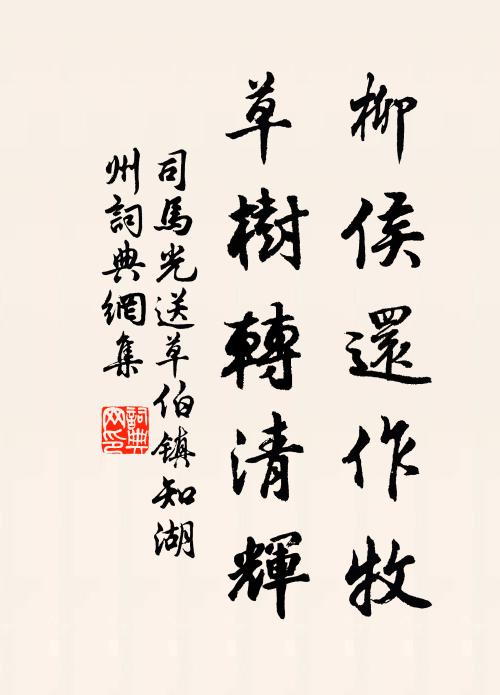 柳侯還作牧
草樹轉清輝
司馬光送草伯鎮知湖
州詞典網集
詞典網印